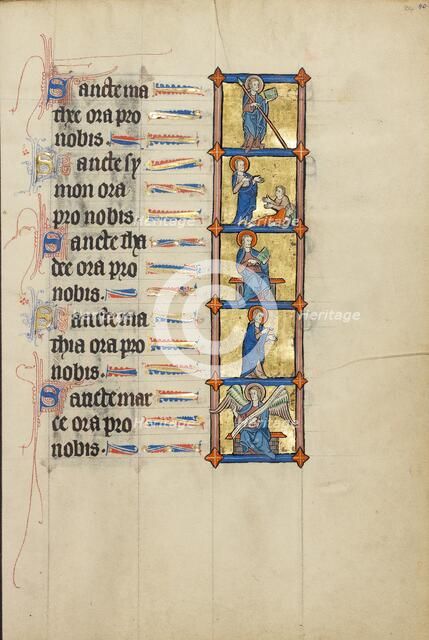 Sancte ma
thee ora pro
nobis.
Sancte sy
mon ora
pro nobis
Sancte tha
dee ora pro
nobis.
Sancte ma
thia ora pro
nobis.
Sancte mar
ce ora pro
nobis.
Heritage
Heritage
Heritage
Heritage
Heritage